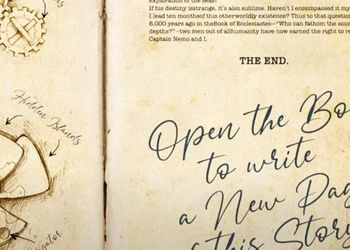 Hidden Islands
If his destiny isstrange, it's also sublime. Haven't I encompassed it my
I lead ten monthsof this otherworldly existence? Thus to that question
6,000 years ago in theBook of Ecclesiastes—"Who can fathom the soun
depths?"—two men out of allhumanity have now earned the right to re
Captain Nemo and I.
THE END.
Open the Bo
to write
a New Pag
of this Story